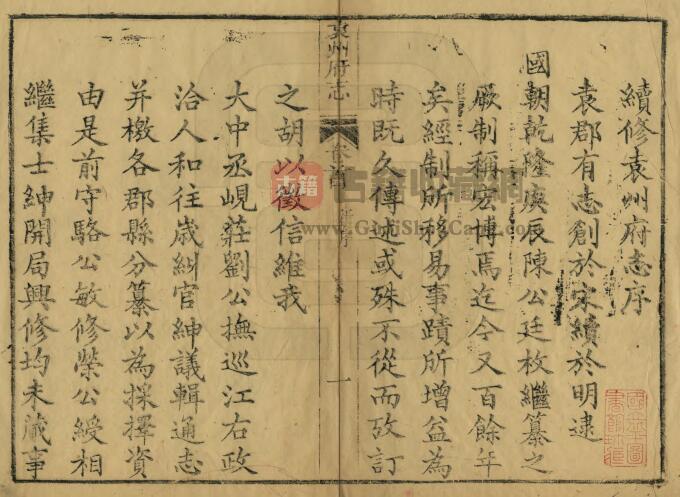 續修袁州府志序
袁郡有志創於宋續於明逮
國朝乾隆庚辰陳公廷枚繼纂之
厥制稱宏博焉迄今又百餘年
矣經制所移易事蹟所增益為
時既久傳述或殊不從而攷訂
袁州府志
卷首
序
一
之胡以徵信維我
大中丞峴莊劉公撫巡江右政
洽人和往歲糾官紳議輯通志
并檄各郡縣分纂以為採擇資
由是前守駱公敏修榮公綬相
繼集士紳開局興修均未蕆事
古籍
www.GujiShuCang.com